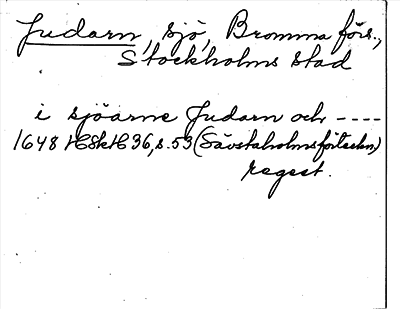 Judarn, sjö, Bromma förs.,
Stockholms stad
i sjöarne Judarn och ----
1648 HSkH 36, s. 53 (Säfstaholmsförteckn.)
regest.